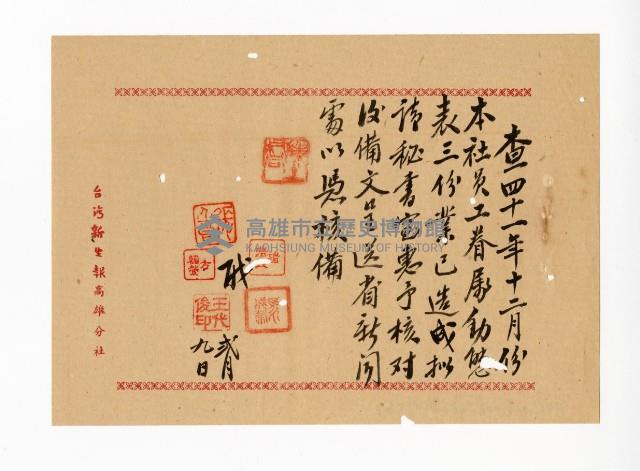 查四十一年十二月份
本社員工眷屬動態
表三份業已造成拟
請秘書室惠予核对
後備文呈送省新聞
處以憑核備
職
弍月
九日
台灣新生報高雄分社
高雄市立歷史博物館
KAOHSIUNG MUSEUM OF HISTORY